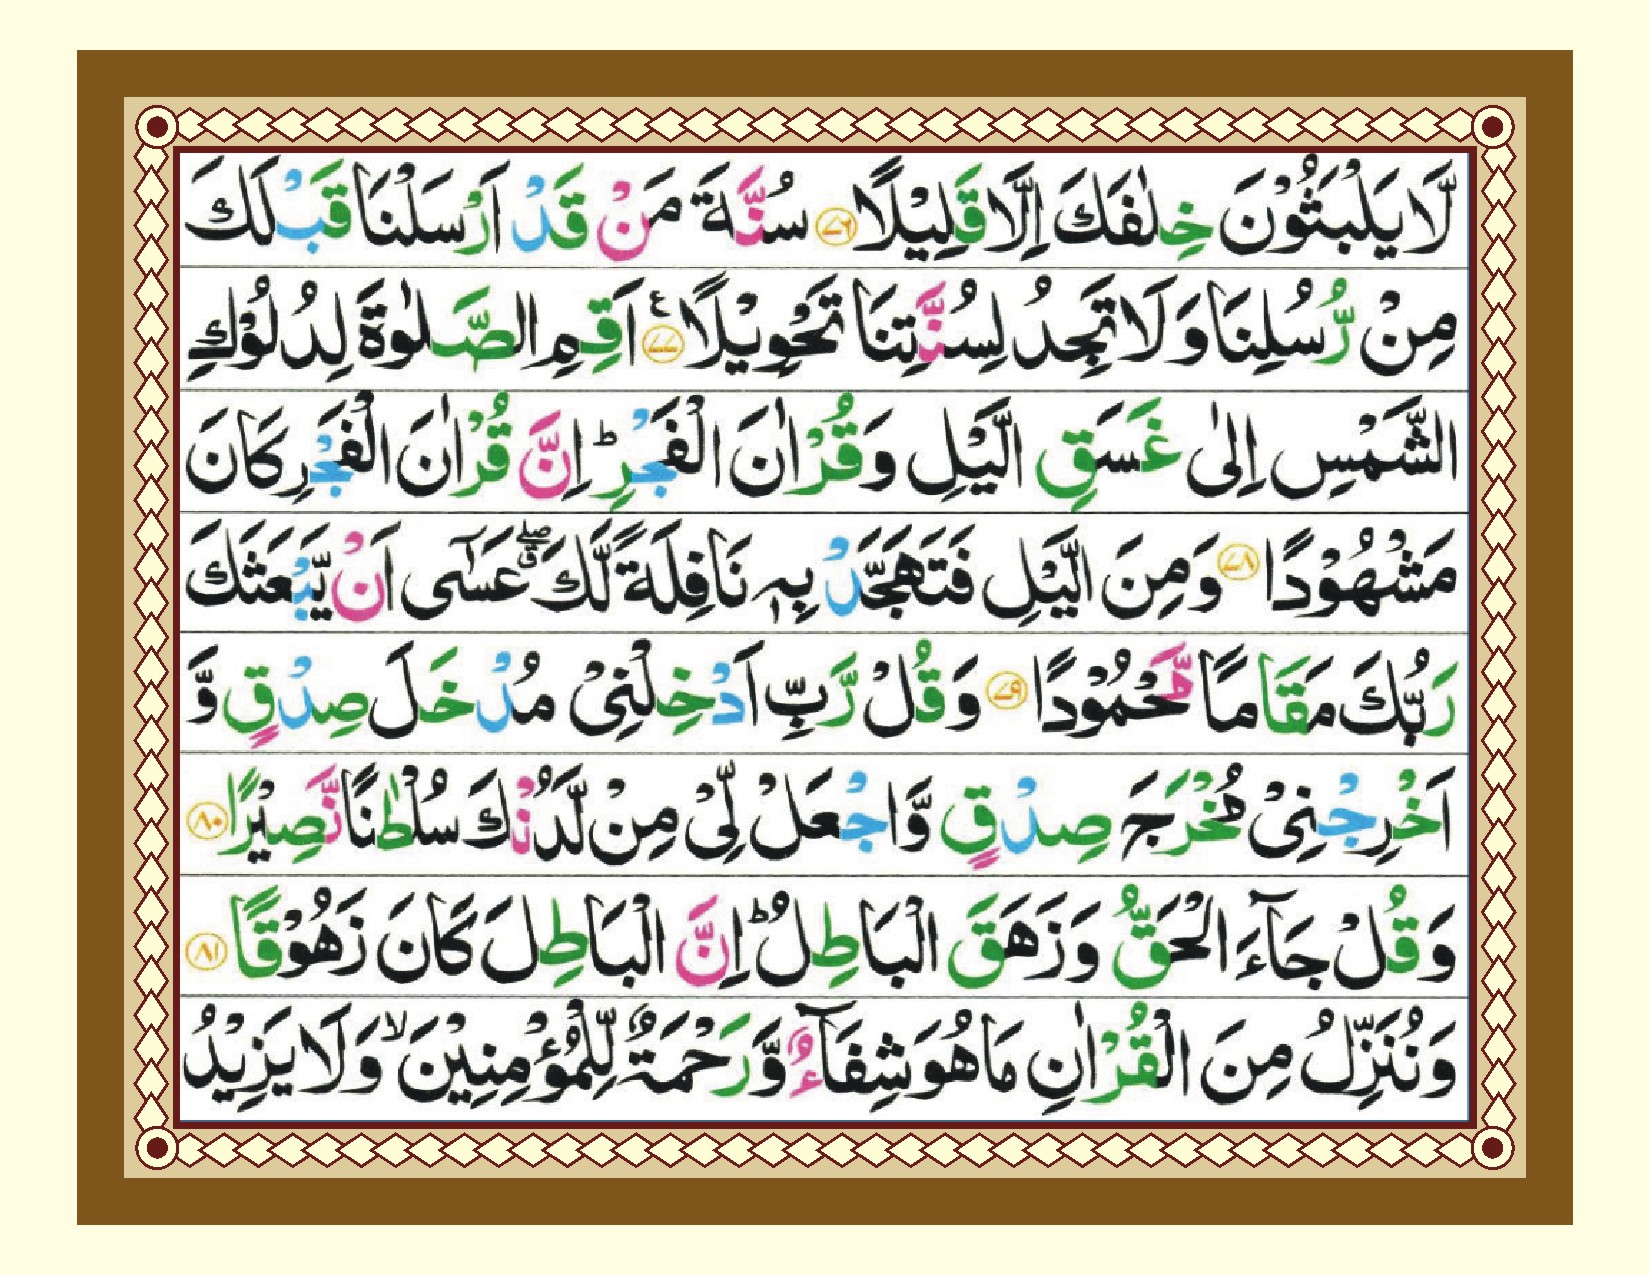 لَّا يَلْبَثُوْنَ خِلٰفَكَ اِلَّا قَلِيْلًا ﴿۷۶﴾ سُنَّةَ مَنْ قَدْ اَرْسَلْنَا قَبْلَكَ
مِنْ رُّسُلِنَا وَلَا تَجِدُ لِسُنَّتِنَا تَحْوِيْلًا ﴿۷۷﴾ ع اَقِمِ الصَّلٰوةَ لِدُلُوْكِ
الشَّمْسِ اِلٰى غَسَقِ الَّيْلِ وَقُرْاٰنَ الْفَجْرِ ؕ اِنَّ قُرْاٰنَ الْفَجْرِ كَانَ
مَشْهُوْدًا ﴿۷۸﴾ وَمِنَ الَّيْلِ فَتَهَجَّدْ بِهٖ نَافِلَةً لَّكَ ۖق عَسٰۤى اَنْ يَّبْعَثَكَ
رَبُّكَ مَقَامًا مَّحْمُوْدًا ﴿۷۹﴾ وَقُلْ رَّبِّ اَدْخِلْنِيْ مُدْخَلَ صِدْقٍ وَّ
اَخْرِجْنِيْ مُخْرَجَ صِدْقٍ وَّاجْعَلْ لِّيْ مِنْ لَّدُنْكَ سُلْطٰنًا نَّصِيْرًا ﴿۸۰﴾
وَقُلْ جَآءَ الْحَقُّ وَزَهَقَ الْبَاطِلُ ؕ اِنَّ الْبَاطِلَ كَانَ زَهُوْقًا ﴿۸۱﴾
وَنُنَزِّلُ مِنَ الْقُرْاٰنِ مَا هُوَ شِفَآءٌ وَّرَحْمَةٌ لِّلْمُؤْمِنِيْنَ ۙ وَلَا يَزِيْدُ